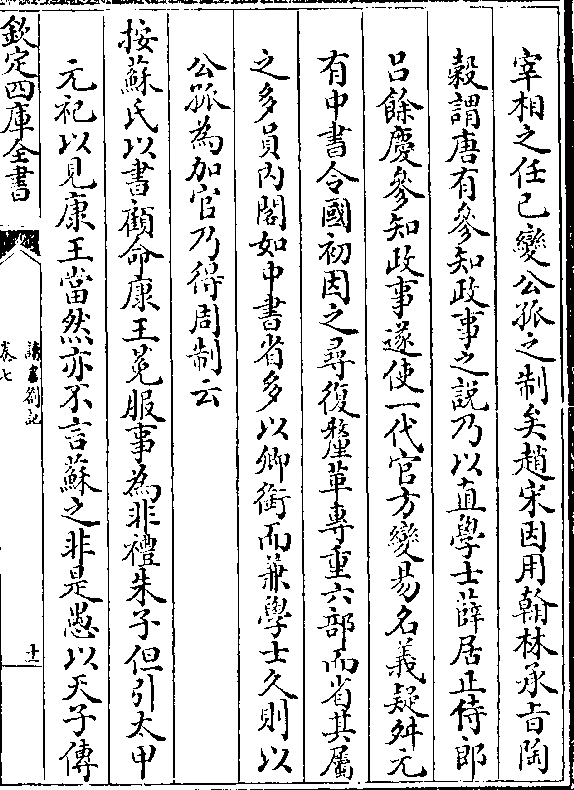 宰相之任已變公孤之制矣趙宋因用翰林承㫖陶
榖謂唐有參知政事之說乃以直學士薛居正侍郎
吕餘慶參知政事遂使一代官方變易名義疑舛元
有中書令國初因之尋復釐革專重六部而省其屬
之多員内閣如中書省多以卿銜而兼學士久則以
公孤為加官乃得周制云
按蘇氏以書顧命康王冕服事為非禮朱子但引太甲
元祀以見康王當然亦不言蘇之非是愚以天子傳
欽定四庫全書
讀書劄記
卷七
十二